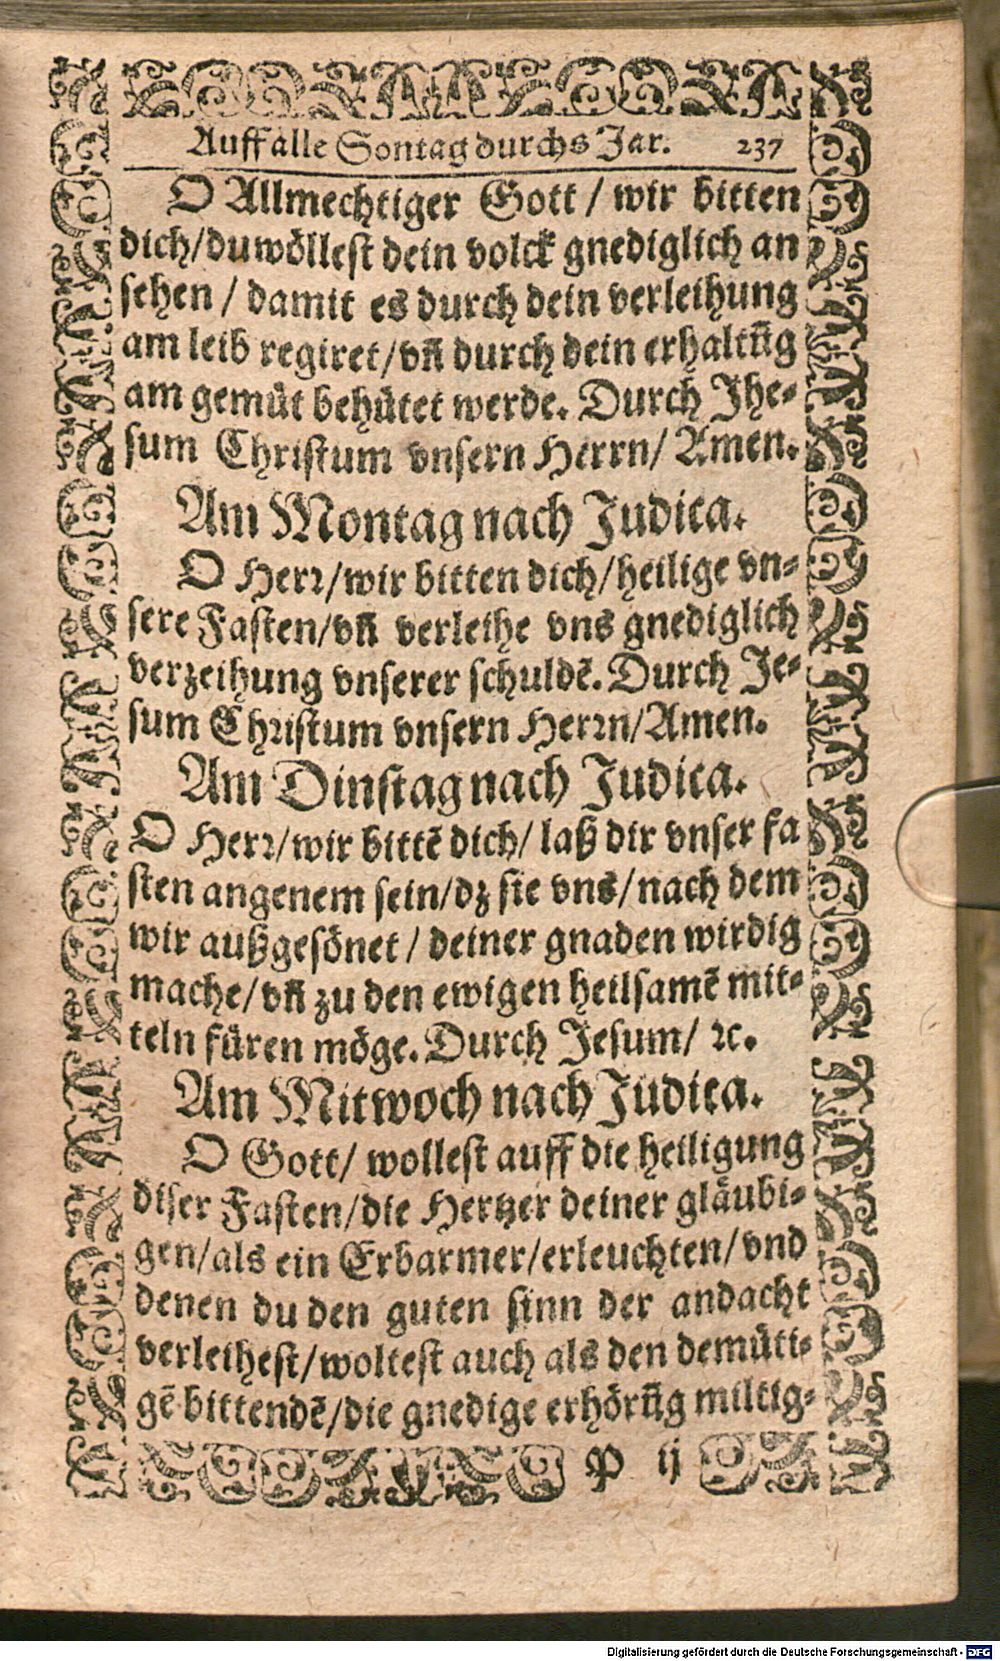 Auff alle Sontag durchs Jar. 237
O Allmechtiger Gott / wir bitten
dich/du wöllest dein volck gnediglich an
sehen / damit es durch dein verleihung
am leib regiret/vñ durch dein erhaltũg
am gemüt behütet werde. Durch Jhe-
sum Christum vnsern Herrn/ Amen.
Am Montag nach Judica.
O Herr/wir bitten dich/heilige vn-
sere Fasten/vñ verleihe vns gnediglich
verzeihung vnserer schuldẽ. Durch Je-
sum Christum vnsern Herrn/Amen.
Am Dinstag nach Judica.
O Herr/wir bittẽ dich/ laß dir vnser fa
sten angenem sein/dz sie vns/nach dem
wir außgesönet / deiner gnaden wirdig
mache/vñ zu den ewigen heilsamẽ mit-
teln füren möge. Durch Jesum/ ꝛc.
Am Mitwoch nach Judica.
O Gott/ wollest auff die heiligung
diser Fasten/die Hertzer deiner gläubi-
gen/als ein Erbarmer/erleuchten/vnd
denen du den guten sinn der andacht
verleihest/woltest auch als den demüti-
gẽ bittendẽ/die gnedige erhörũg miltig-
P ij
Digitalisierung gefördert durch die Deutsche Forschungsgemeinschaft - DFG